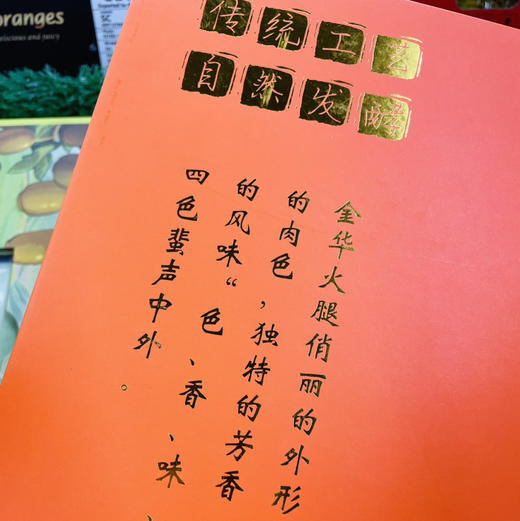 oranges
delicious and juicy
传统工艺
自然发酵
金华火腿俏丽的外形
的肉色，独特的芳香
的风味“色、香、味、
四色蜚声中外。